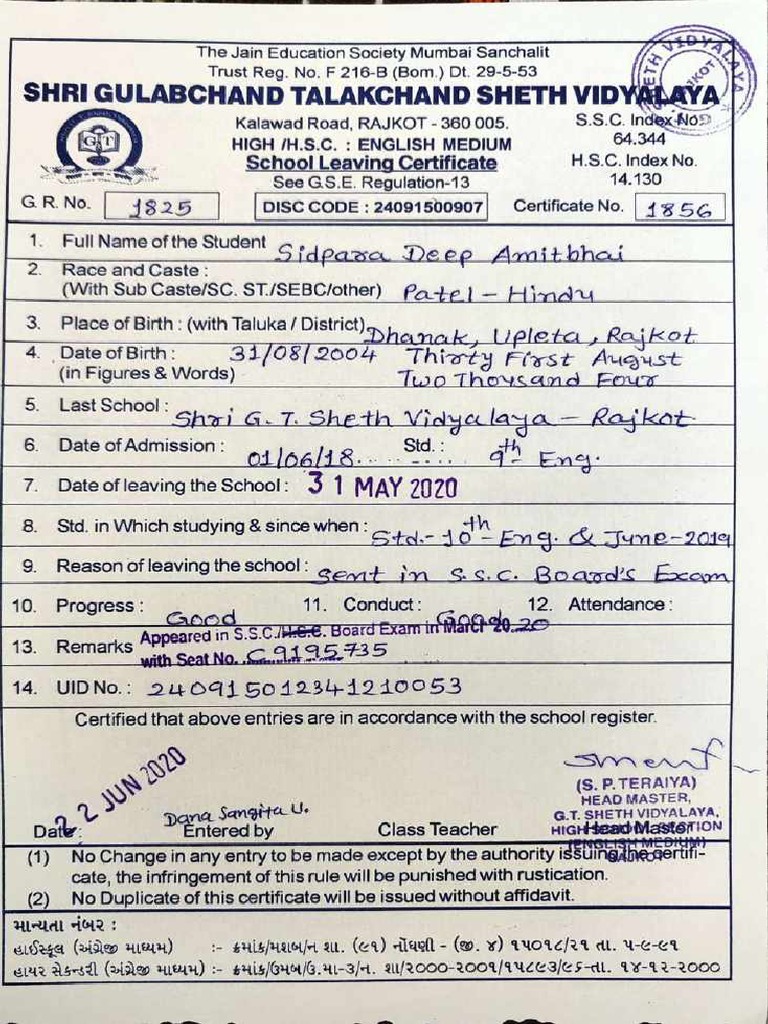 The Jain Education Society Mumbai Sanchalit
Trust Reg. No. F 216-B (Bom.) Dt. 29-5-53
SHRI GULABCHAND TALAKCHAND SHETH VIDYALAYA
Kalawad Road, RAJKOT - 360 005.
S.S.C. Index No.
64.344
HIGH /H.S.C. : ENGLISH MEDIUM
School Leaving Certificate
H.S.C. Index No.
14.130
See G.S.E. Regulation-13
G. R. No. 1825
DISC CODE : 24091500907
Certificate No. 1856
1. Full Name of the Student Sidpara Deep Amitbhai
2. Race and Caste :
(With Sub Caste/SC. ST./SEBC/other) Patel - Hindu
3. Place of Birth : (with Taluka / District) Dhanak, Upleta, Rajkot
4. Date of Birth : 31/08/2004 Thirty First August
(in Figures & Words) Two Thousand Four
5. Last School : Shri G. T. Sheth Vidyalaya - Rajkot
6. Date of Admission : 01/06/18 Std. : 9th Eng.
7. Date of leaving the School : 31 MAY 2020
8. Std. in Which studying & since when : Std.- 10th Eng. & June-2019
9. Reason of leaving the school : sent in S.S.C. Board's Exam
10. Progress : Good 11. Conduct : Good 12. Attendance :
13. Remarks Appeared in S.S.C./H.S.C. Board Exam in March 2020
with Seat No. C9195735
14. UID No. : 240915012341210053
Certified that above entries are in accordance with the school register.
22 JUN 2020
(S. P. TERAIYA)
HEAD MASTER,
G.T. SHETH VIDYALAYA,
HIGH SCHOOL SECTION
(ENGLISH MEDIUM)
RAJKOT
Dana Sangita U.
Date: Entered by Class Teacher Head Master
(1) No Change in any entry to be made except by the authority issuing the certifi-
cate, the infringement of this rule will be punished with rustication.
(2) No Duplicate of this certificate will be issued without affidavit.
માન્યતા નંબર :
હાઈસ્કૂલ (અંગ્રેજી માધ્યમ) :- ક્રમાંક/મશબ/ન શા. (૯૧) નોંધણી - (જી. ૪) ૧૫૦૧૮/૨૧ તા. ૫-૯-૯૧
હાયર સેકન્ડરી (અંગ્રેજી માધ્યમ) :- ક્રમાંક/ઉમબ/ઉ.મા-૩/ન. શા/૨૦૦૦-૨૦૦૧/૧૫૮૯૩/૯૬-તા. ૧૪-૧૨-૨૦૦૦